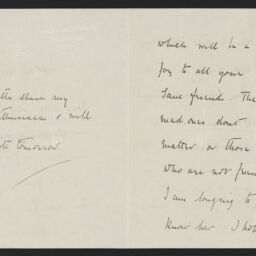 shares my
& will
tomorrow
which will be a
joy to all your
Sane friends. The
mad ones dont
matter or those
who are not frien
I am longing to
Know her. I ho